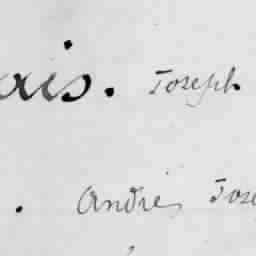 ais. Joseph
. André, Jose